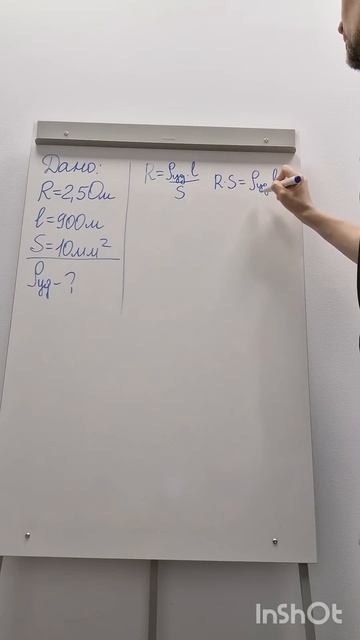 Дано:
R=2,5Ом
l=900м
S=10мм²
ρуд-?
R=ρуд·l/S
R·S=ρуд l
InShOt